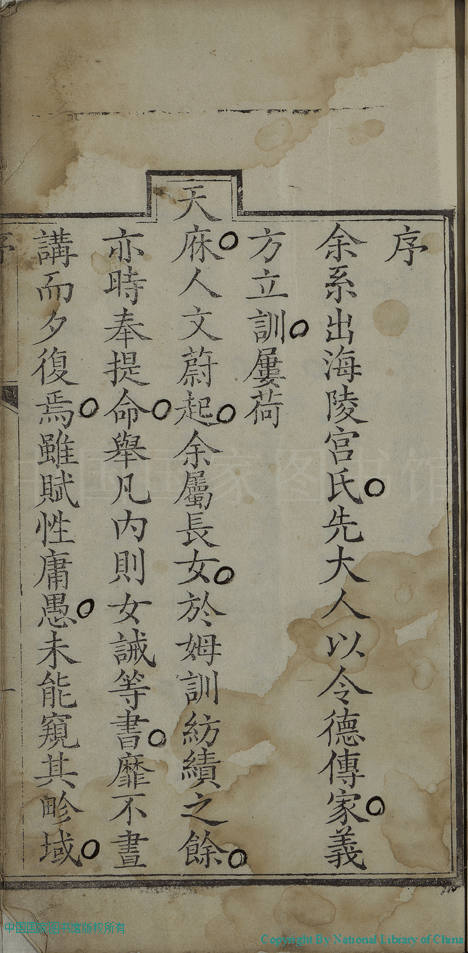 序
余系出海陵宮氏○先大人以令德傳家○義
方立訓○屢荷
天庥○人文蔚起○余屬長女○於姆訓紡績之餘○
亦時奉提命○舉凡內則女誡等書○靡不晝
講而夕復焉○雖賦性庸愚○未能窺其畛域○
序
中国国家图书馆
中国国家图书馆版权所有
Copyright By National Library of China